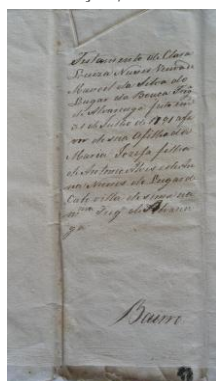 Testamento de Clara
Luiza Nunes Viuva de
Manoel da Silva do
Lugar da Bouca Frg.ª
de Alvarenga feito em
31 de Julho de 1821 a fa
vor de sua Afilhada
Maria Jozefa filha
de Antonio e de An
na Nunes do Lugar de
villa de sima na
m.ma Frg.ª de Alvaren
ga